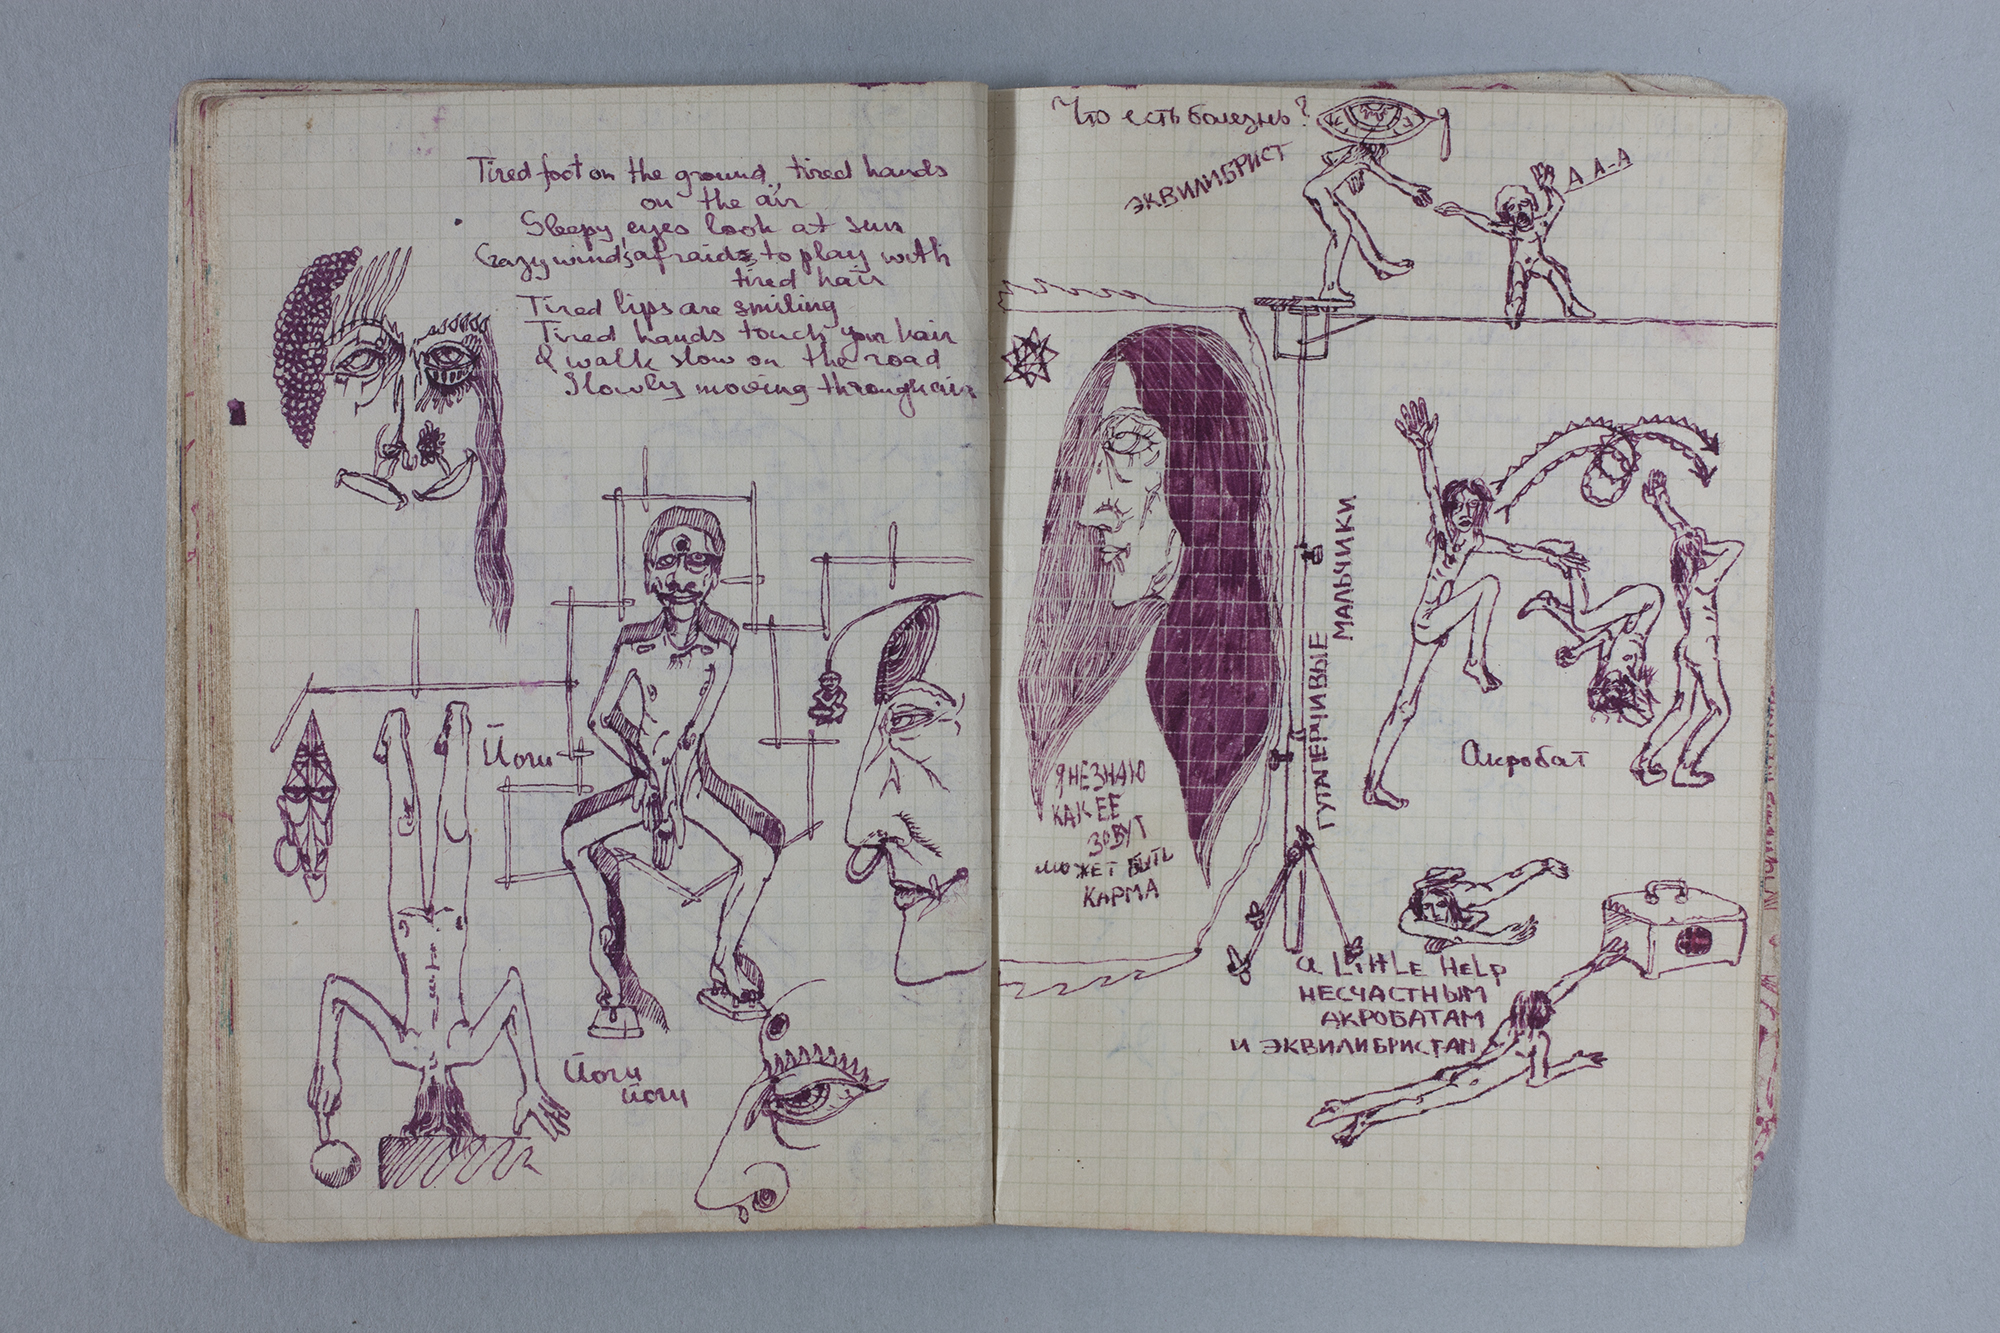 Tired foot on the ground, tired hands
on the air
Sleepy eyes look at sun
Crazy winds afraids to play with
tired hair
Tired lips are smiling
Tired hands touch your hair
& walk slow on the road
Slowly moving through air
Йоги
Йоги
йоги
Что есть болезнь?
ЭКВИЛИБРИСТ
А А-А
ГУТАПЕРЧИВЫЕ
МАЛЬЧИКИ
Акробат
Я НЕ ЗНАЮ
КАК ЕЕ
ЗОВУТ
МОЖЕТ БЫТЬ
КАРМА
a LittLe HeLp
НЕСЧАСТНЫМ
АКРОБАТАМ
И ЭКВИЛИБРИСТАМ